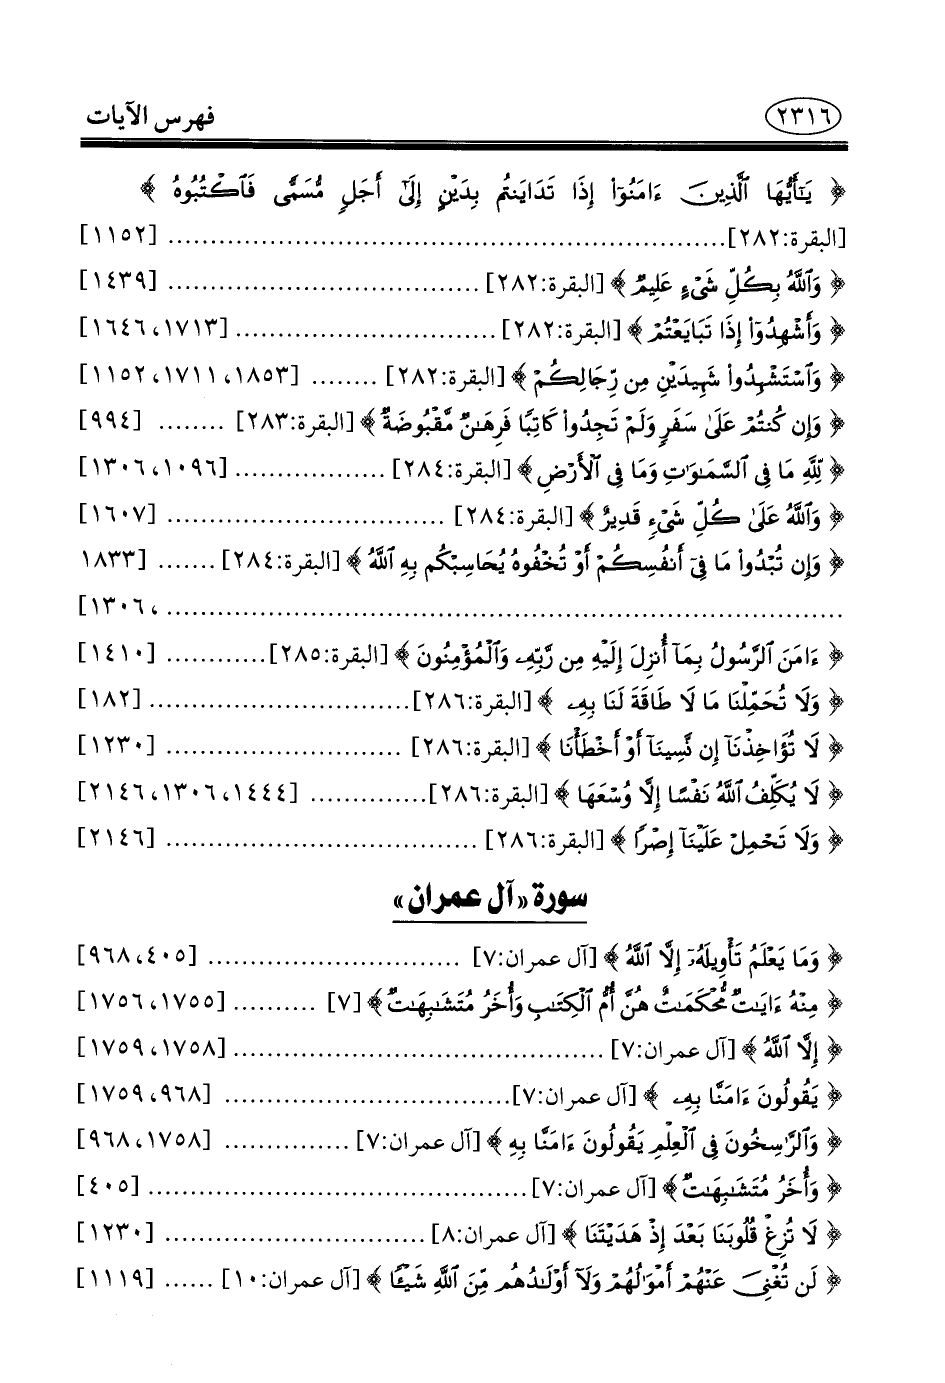 ٢٣١٦ فهرس الآيات
﴿ يَـٰٓأَيُّهَا ٱلَّذِينَ ءَامَنُوٓا۟ إِذَا تَدَايَنتُم بِدَيْنٍ إِلَىٰٓ أَجَلٍ مُّسَمًّى فَٱكْتُبُوهُ ﴾
[البقرة:٢٨٢] ................ [١١٥٢]
﴿ وَٱللَّهُ بِكُلِّ شَىْءٍ عَلِيمٌ ﴾ [البقرة:٢٨٢] ................ [١٤٣٩]
﴿ وَأَشْهِدُوٓا۟ إِذَا تَبَايَعْتُمْ ﴾ [البقرة:٢٨٢] ................ [١٧١٣، ١٦٤٦]
﴿ وَٱسْتَشْهِدُوا۟ شَهِيدَيْنِ مِن رِّجَالِكُمْ ﴾ [البقرة:٢٨٢] ........ [١٨٥٣، ١٧١١، ١١٥٢]
﴿ وَإِن كُنتُمْ عَلَىٰ سَفَرٍ وَلَمْ تَجِدُوا۟ كَاتِبًا فَرِهَـٰنٌ مَّقْبُوضَةٌ ﴾ [البقرة:٢٨٣] ........ [٩٩٤]
﴿ لِّلَّهِ مَا فِى ٱلسَّمَـٰوَٰتِ وَمَا فِى ٱلْأَرْضِ ﴾ [البقرة:٢٨٤] ................ [١٠٩٦، ١٣٠٦]
﴿ وَٱللَّهُ عَلَىٰ كُلِّ شَىْءٍ قَدِيرٌ ﴾ [البقرة:٢٨٤] ................ [١٦٠٧]
﴿ وَإِن تُبْدُوا۟ مَا فِىٓ أَنفُسِكُمْ أَوْ تُخْفُوهُ يُحَاسِبْكُم بِهِ ٱللَّهُ ﴾ [البقرة:٢٨٤] ....... [١٨٣٣
................ ، ١٣٠٦]
﴿ ءَامَنَ ٱلرَّسُولُ بِمَآ أُنزِلَ إِلَيْهِ مِن رَّبِّهِۦ وَٱلْمُؤْمِنُونَ ﴾ [البقرة:٢٨٥] ............ [١٤١٠]
﴿ وَلَا تُحَمِّلْنَا مَا لَا طَاقَةَ لَنَا بِهِۦ ﴾ [البقرة:٢٨٦] ................ [١٨٢]
﴿ لَا تُؤَاخِذْنَآ إِن نَّسِينَآ أَوْ أَخْطَأْنَا ﴾ [البقرة:٢٨٦] ................ [١٢٣٠]
﴿ لَا يُكَلِّفُ ٱللَّهُ نَفْسًا إِلَّا وُسْعَهَا ﴾ [البقرة:٢٨٦] .............. [١٤٤٤، ١٣٠٦، ٢١٤٦]
﴿ وَلَا تَحْمِلْ عَلَيْنَآ إِصْرًا ﴾ [البقرة:٢٨٦] ................ [٢١٤٦]
سورة «آل عمران»
﴿ وَمَا يَعْلَمُ تَأْوِيلَهُۥٓ إِلَّا ٱللَّهُ ﴾ [آل عمران:٧] ................ [٤٠٥، ٩٦٨]
﴿ مِنْهُ ءَايَـٰتٌ مُّحْكَمَـٰتٌ هُنَّ أُمُّ ٱلْكِتَـٰبِ وَأُخَرُ مُتَشَـٰبِهَـٰتٌ ﴾ [٧] .......... [١٧٥٥، ١٧٥٦]
﴿ إِلَّا ٱللَّهُ ﴾ [آل عمران:٧] ................ [١٧٥٨، ١٧٥٩]
﴿ يَقُولُونَ ءَامَنَّا بِهِۦ ﴾ [آل عمران:٧] ................ [٩٦٨، ١٧٥٩]
﴿ وَٱلرَّٰسِخُونَ فِى ٱلْعِلْمِ يَقُولُونَ ءَامَنَّا بِهِ ﴾ [آل عمران:٧] ............... [١٧٥٨، ٩٦٨]
﴿ وَأُخَرُ مُتَشَـٰبِهَـٰتٌ ﴾ [آل عمران:٧] ................ [٤٠٥]
﴿ لَا تُزِغْ قُلُوبَنَا بَعْدَ إِذْ هَدَيْتَنَا ﴾ [آل عمران:٨] ................ [١٢٣٠]
﴿ لَن تُغْنِىَ عَنْهُمْ أَمْوَٰلُهُمْ وَلَآ أَوْلَـٰدُهُم مِّنَ ٱللَّهِ شَيْـًٔا ﴾ [آل عمران:١٠] ...... [١١١٩]